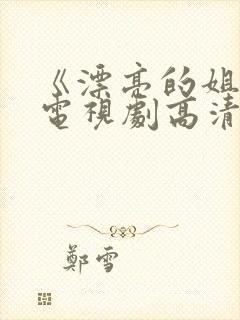 《漂亮的姐
電視劇高清
鄭雪